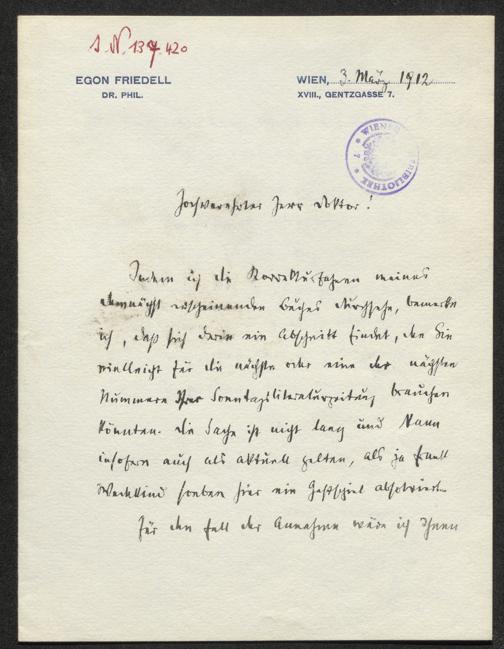 J. N. 137.420
EGON FRIEDELL
DR. PHIL.
WIEN, 3. März 1912
XVIII., GENTZGASSE 7.
WIENER BIBLIOTHEK * 7 *
Hochverehrter Herr Doktor!
Indem ich die Korrekturfahnen meines
demnächst erscheinenden Buches durchsehe, bemerke
ich, daß sich darin ein Abschnitt findet, den Sie
vielleicht für die nächste oder eine der nächsten
Nummern Ihrer Sonntagsliteraturzeitung brauchen
könnten. Die Sache ist nicht lang und kann
insofern auch als aktuell gelten, als ja Frank
Wedekind soeben hier ein Gastspiel absolviert.
Für den Fall der Annahme wäre ich Ihnen